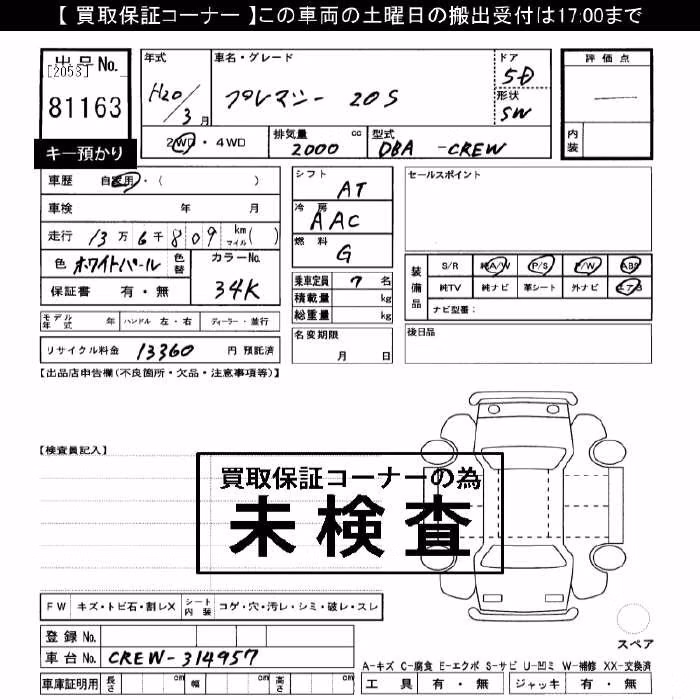 【 買取保証コーナー 】この車両の土曜日の搬出受付は17:00まで
出品No.
[2053]
81163
キー預かり
年式
H20/3月
車名・グレード
プレマシー 20S
ドア
5D
形状
SW
評価点
内装
2WD・4WD
排気量 2000 cc
型式 DBA -CREW
車歴 自家用・( )
車検 年 月
走行 13万6千809 km マイル ( )
色 ホワイトパール 色替
カラーNo. 34K
保証書 有・無
シフト AT
冷房 AAC
燃料 G
乗車定員 7 名
積載量 kg
総重量 kg
セールスポイント
装備品
S/R 純A/W P/S P/W ABS
純TV 純ナビ 革シート 外ナビ エアB
ナビ型番:
モデル年式 年 ハンドル 左・右 ディーラー・並行
名変期限
月 日
後日品
リサイクル料金 13360 円 預託済
【出品店申告欄(不良箇所・欠品・注意事項等)】
【検査員記入】
買取保証コーナーの為
未検査
FW キズ・トビ石・割レX シート内装 コゲ・穴・汚レ・シミ・破レ・スレ
スペア
登録No.
車台No. CREW-314957
車庫証明用 長さ cm 幅 cm 高さ cm
A-キズ C-腐食 E-エクボ S-サビ U-凹ミ W-補修 XX-交換済
工具 有・無 ジャッキ 有・無